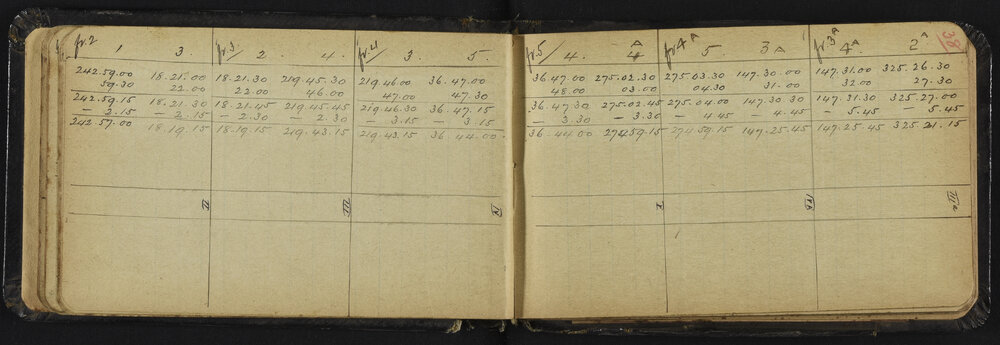 fr.2 1 3. fr.3 2 4. fr.4 3. 5.
242.59.00 18.21.00 18.21.30 219.45.30 219.46.00 36.47.00
59.30 22.00 22.00 46.00 47.00 47.30
242.59.15 18.21.30 18.21.45 219.45.45 219.46.30 36.47.15
— 2.15 — 2.15 — 2.30 — 2.30 — 3.15 — 3.15
242.57.00 18.19.15 18.19.15 219.43.15 219.43.15 36.44.00
II III IV
fr.5 4. 4A fr.4A 5. 3A fr.3A 4A 2A 38
36.47.00 275.02.30 275.03.30 147.30.00 147.31.00 325.26.30
48.00 03.00 04.30 31.00 32.00 27.30
36.47.30 275.02.45 275.04.00 147.30.30 147.31.30 325.27.00
— 3.30 — 3.30 — 4.45 — 4.45 — 5.45 — 5.45
36.44.00 274.59.15 274.59.15 147.25.45 147.25.45 325.21.15
V. IVb IIIa